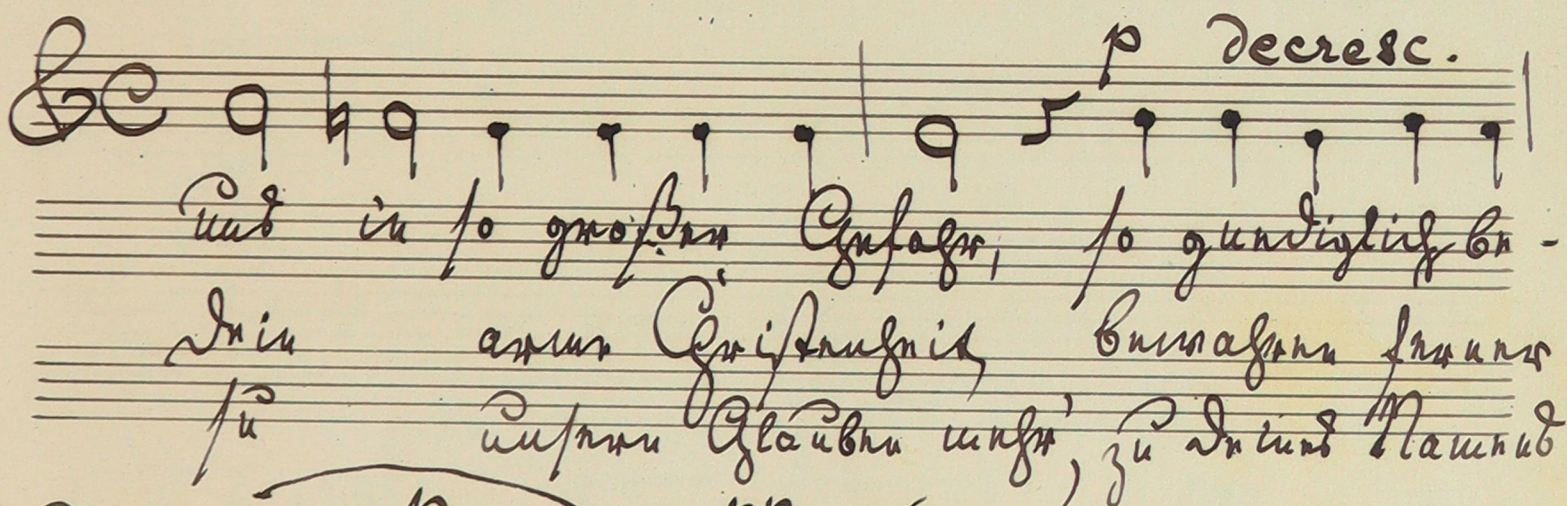 p decresc.
uns in so großer Gefahr, so gnediglich be-
dein arme Christenheit, bewahren ferner
in unsern Glauben mehr', zu deines Namens